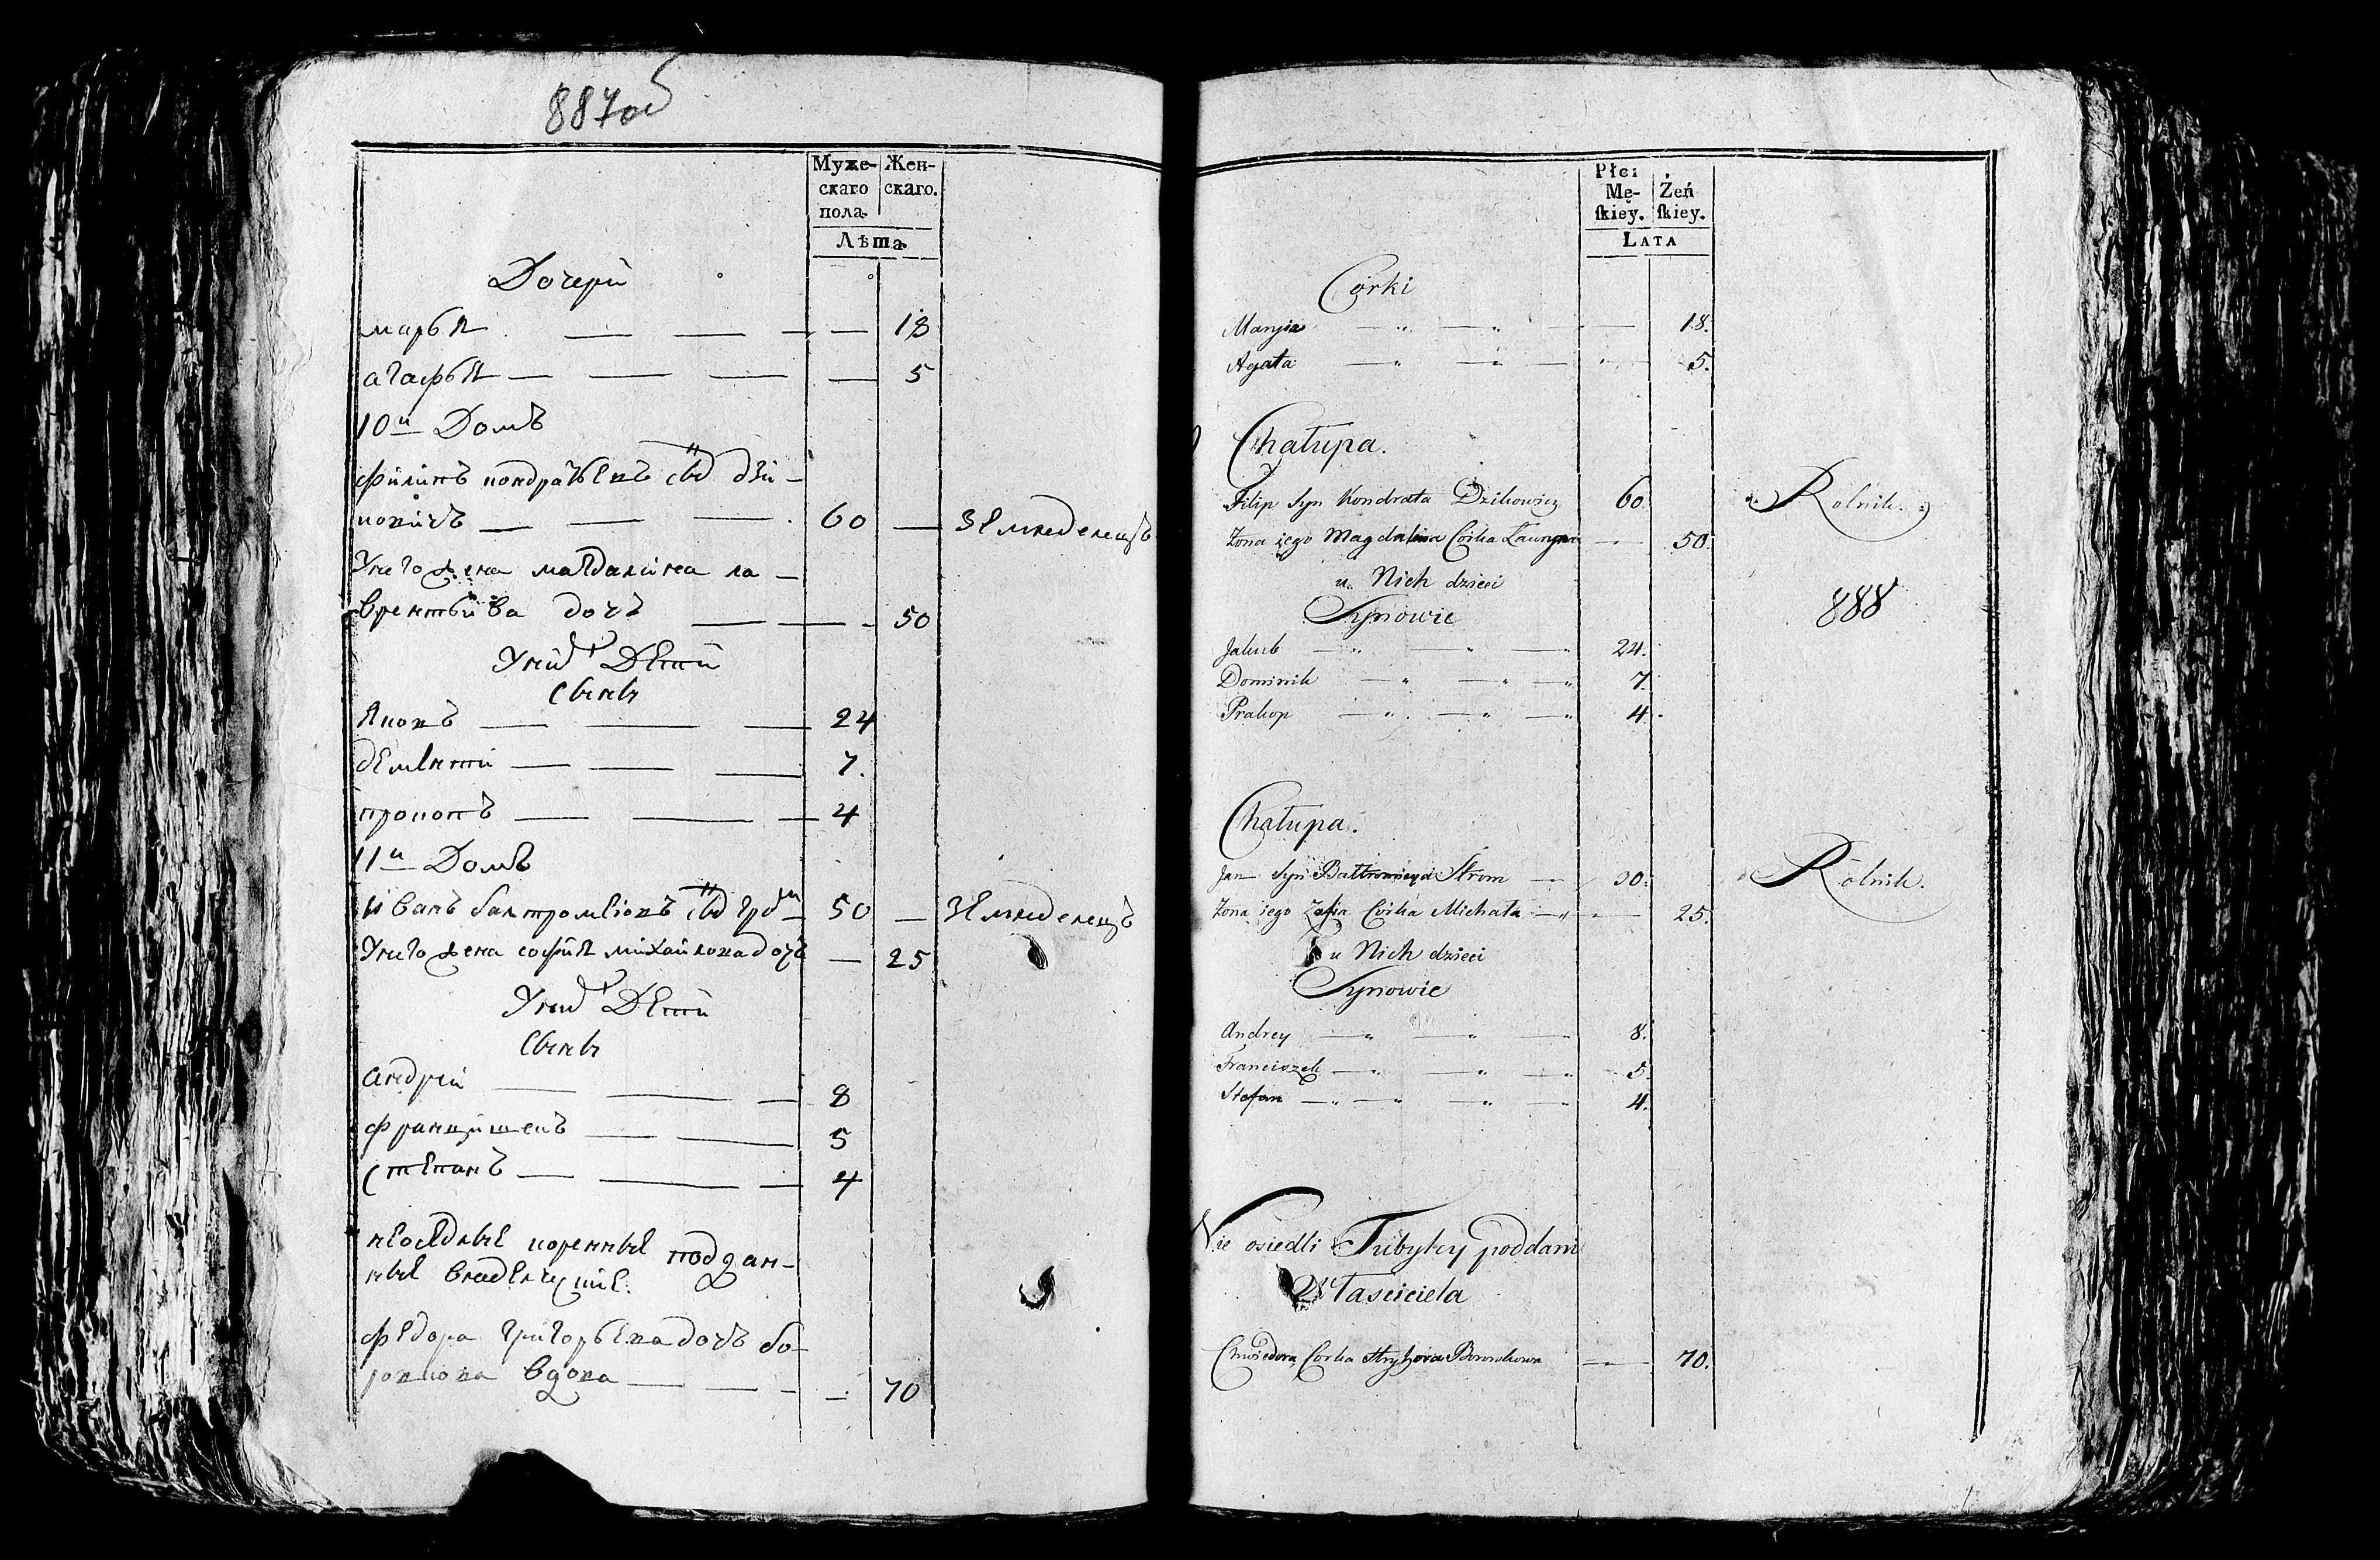 887об
Муже- Жен-
скаго скаго.
пола.
Лѣта.
Дочери
марья 18
агафья 5
10й Домъ
филипъ кондратьевъ снъ дзи-
ковичъ 60 земледелецъ
У него жена магдалина ла-
врентьева дочъ 50
У них Дети
Сыны
Яковъ 24
дементи 7.
прокопъ 4
11й Домъ
Иванъ балтромеіовъ снъ 50 земледелецъ
У него жена софия михайлова дочъ 25
У них Дети
Сыны
андреи 8
францишекъ 5
степанъ 4
неоседлые коренные поддан-
ные владелческие.
федора григорьева дочъ бо-
ровкова вдова 70
Płci
Mę- Żeń
ſkiey. ſkiey.
LATA
Córki
Maryia 18.
Agata 5.
Chałupa.
Filip Syn Kondrata Dzikowicz 60 Rolnik.
Żona iego Magdalina Córka Ławryna 50.
u Nich dzieci
Synowie
888
Jakub 24.
Dominik 7.
Prakop 4.
Chałupa.
Jan Syn Bałtromieya Strom 30. Rolnik.
Żona iego Zofia Córka Michała 25.
u Nich dzieci
Synowie
Andrey 8.
Franciszek 5.
Stefan 4.
Nie osiedli Tubylcy poddani
Właściciela
Chwiedora Corka Hryhora Borowkowa 70.